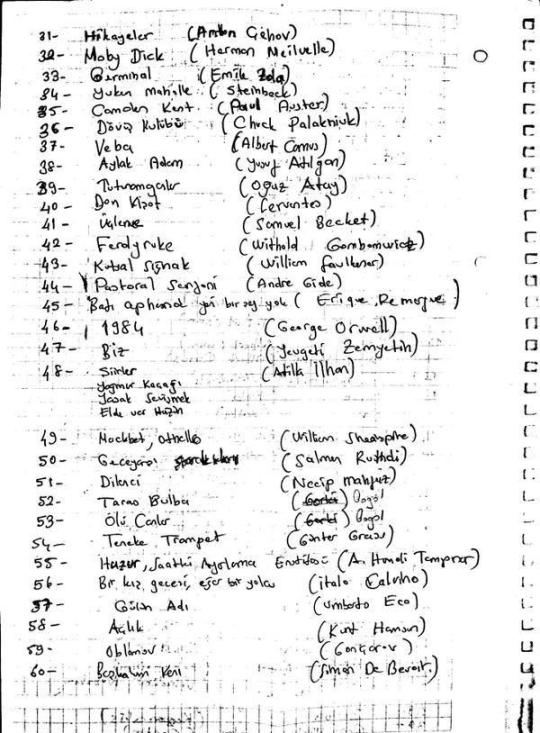 31- Hikayeler (Anton Çehov)
32- Moby Dick (Herman Meilvelle)
33- Germinal (Emile Zola)
34- Yukarı Mahalle (Steinbeck)
35- Camdan Kent (Paul Auster)
36- Dövüş Kulübü (Chuck Palahniuk)
37- Veba (Albert Camus)
38- Aylak Adam (Yusuf Atılgan)
39- Tutunamayanlar (Oğuz Atay)
40- Don Kişot (Cervantes)
41- Üçleme (Samuel Becket)
42- Ferdyruke (Withold Gombowicz)
43- Kutsal Sığınak (William Faulkener)
44- Pastoral Senfoni (Andre Gide)
45- Batı cephesinde yeni bir şey yok (Erique Remarque)
46- 1984 (George Orwell)
47- Biz (Yevgeti Zemyetin)
48- Şiirler (Atilla İlhan)
Yağmur Kaçağı
Yasak Sevişmek
Elde var Hüzün
49- Macbet, othello (William Sheasphre)
50- Geceyarısı (Salman Rushdi)
51- Dilenci (Necip mahfuz)
52- Taras Bulba Gogol
53- Ölü Canlar Gogol
54- Teneke Trampet (Günter Grass)
55- Huzur, Saatleri Ayarlama Enstitüsü (A. Hamdi Tanpınar)
56- Bir kış gecesi, eğer bir yolcu (italo Calvino)
57- Gülün Adı (Umberto Eco)
58- Açlık (Knut Hamsun)
59- Oblomov (Gonçarov)
60- Başkalarının Kanı (Simon De Beravir.)